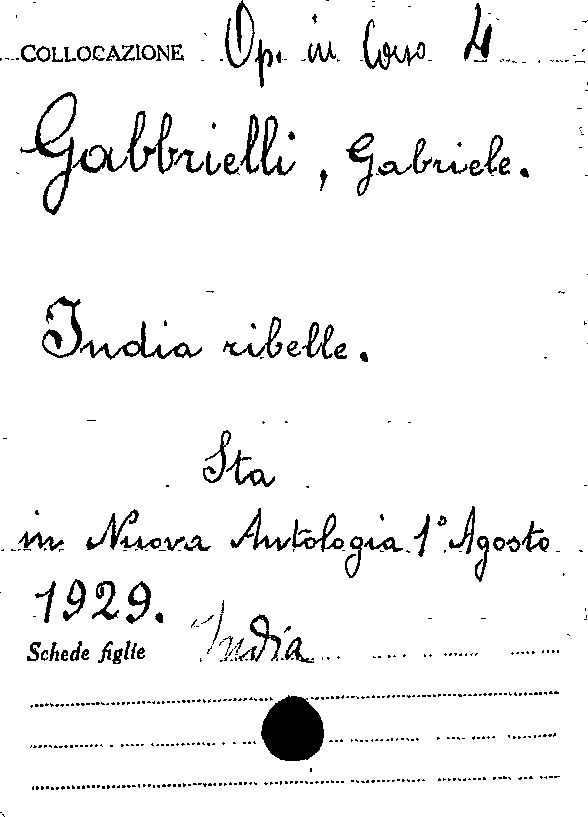 COLLOCAZIONE Op. in Corso 4
Gabbrielli, Gabriele.
India ribelle.
Sta
in Nuova Antologia 1° Agosto
1929.
Schede figlie India